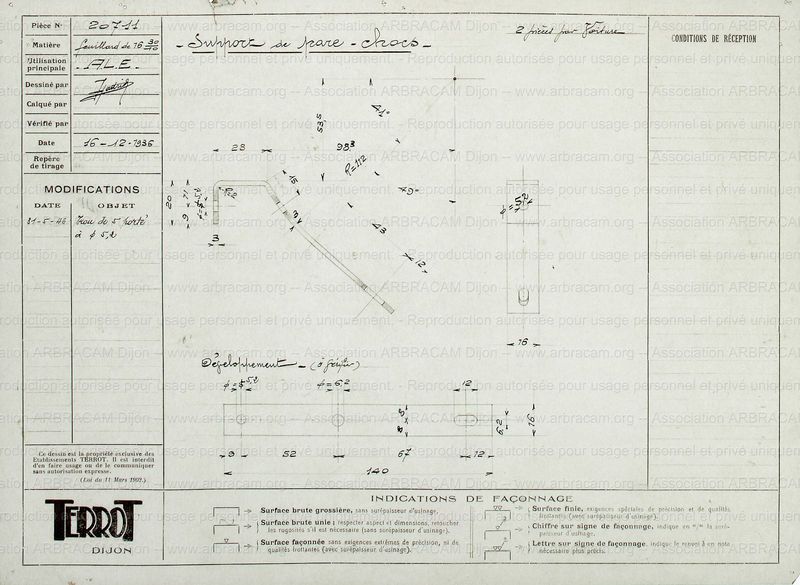 Pièce N° 20711
Matière feuillard de 16 30/10
Utilisation principale A.L.E.
Dessiné par
Calqué par
Vérifié par
Date 16-12-1936
Repère de tirage
MODIFICATIONS
DATE OBJET
31-5-46 Trou de 5 porté
à φ 5,2
Support de pare-chocs
2 pièces par Voiture
CONDITIONS DE RÉCEPTION
53,5
41°
23
983
R=112
15
20
11
9
3
43
12
φ=5,2
16
Développement (à vérifier)
φ=5 5,2
φ=6,2
12
8
8
6,2
16
9
52
67
12
140
Ce dessin est la propriété exclusive des
Etablissements TERROT. Il est interdit
d'en faire usage ou de le communiquer
sans autorisation expresse.
(Loi du 11 Mars 1902.)
TERROT
DIJON
INDICATIONS DE FAÇONNAGE
Surface brute grossière, sans surépaisseur d'usinage.
Surface brute unie : respecter aspect et dimensions, retoucher
les rugosités s'il est nécessaire (sans surépaisseur d'usinage).
Surface façonnée sans exigences extrêmes de précision, ni de
qualités frottantes (avec surépaisseur d'usinage).
Surface finie, exigences spéciales de précision et de qualités
frottantes (avec surépaisseur d'usinage).
Chiffre sur signe de façonnage, indique en m/m la surépaisseur d'usinage.
Lettre sur signe de façonnage, indique le renvoi à en note
nécessaire plus précis.
www.arbracam.org -- Association ARBRACAM Dijon -- www.arbracam.org -- Association ARBRACAM Dijon
Reproduction autorisée pour usage personnel et privé uniquement.